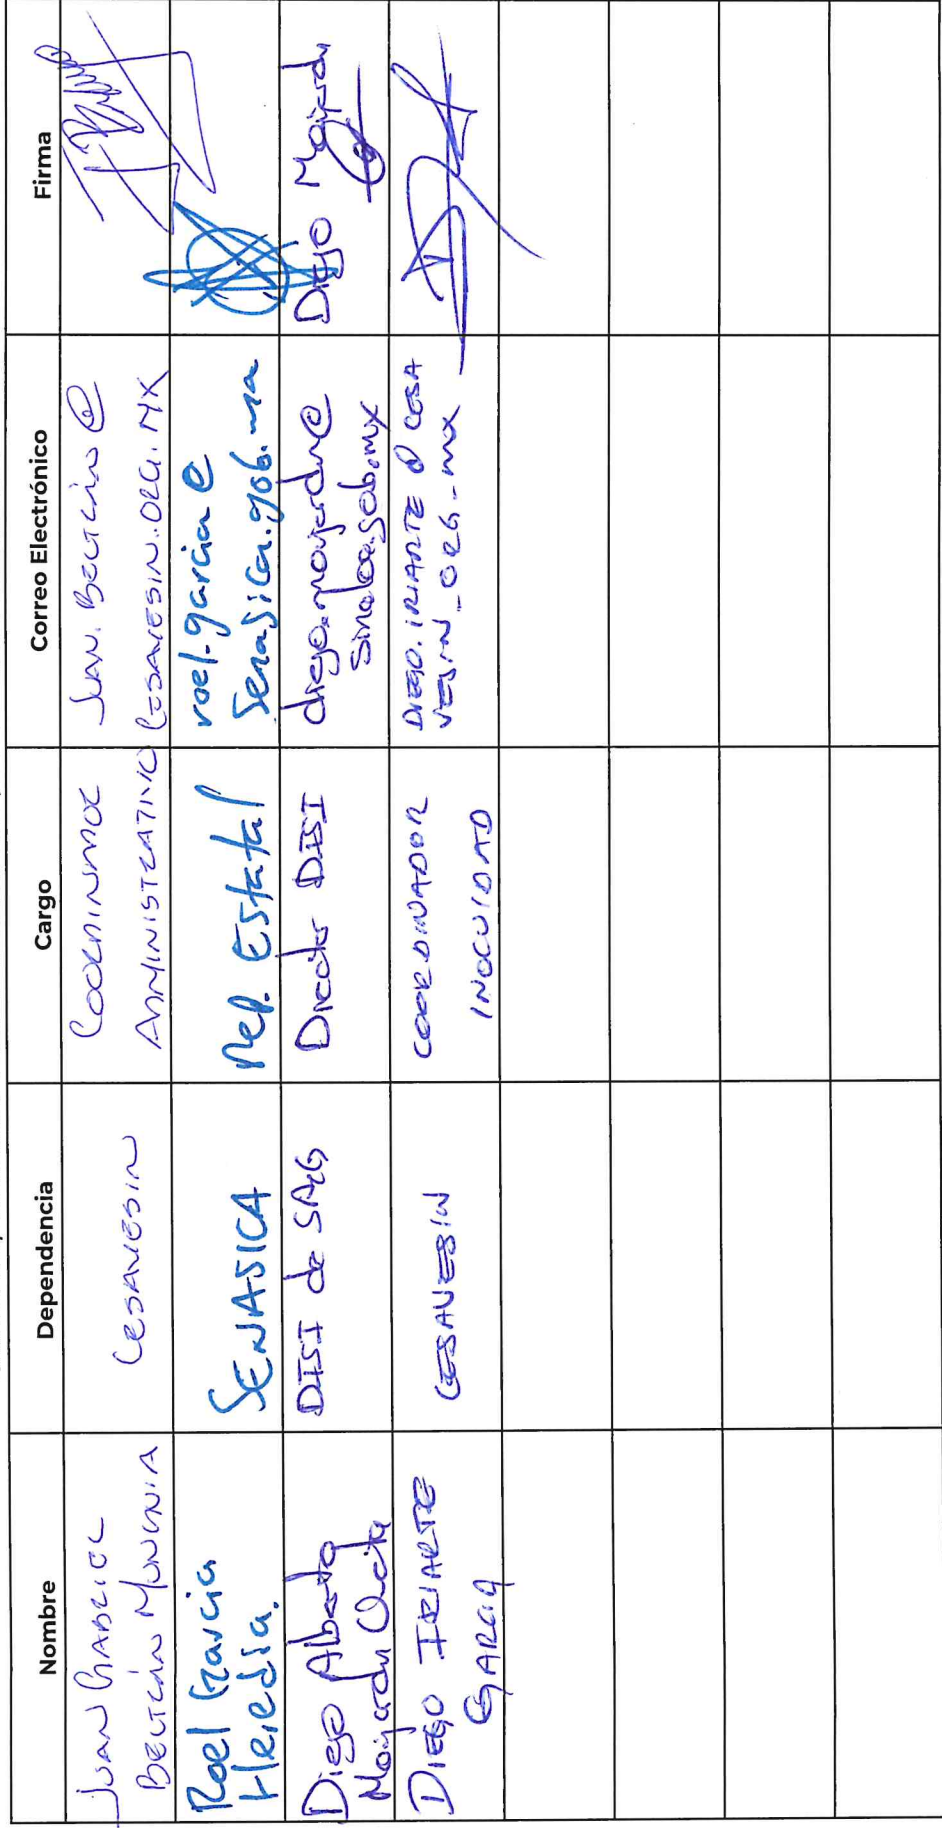 Nombre Dependencia Cargo Correo Electrónico Firma
Juan Gabriel
Beltrán Munguía
CESAVESIN
Coordinador
Administrativo
Juan.Beltrán@
CESAVESIN.ORG.MX
Roel García
Heredia.
SENASICA
Rep. Estatal
roel.garcia@
senasica.gob.mx
Diego Alberto
DISI de SAyG
Director DISI
@
sinaloa.gob.mx
Diego
DIEGO IRIARTE
GARCIA
CESAVESIN
COORDINADOR
INOCUIDAD
DIEGO.IRIARTE@CESA
VESIN_ORG.mx